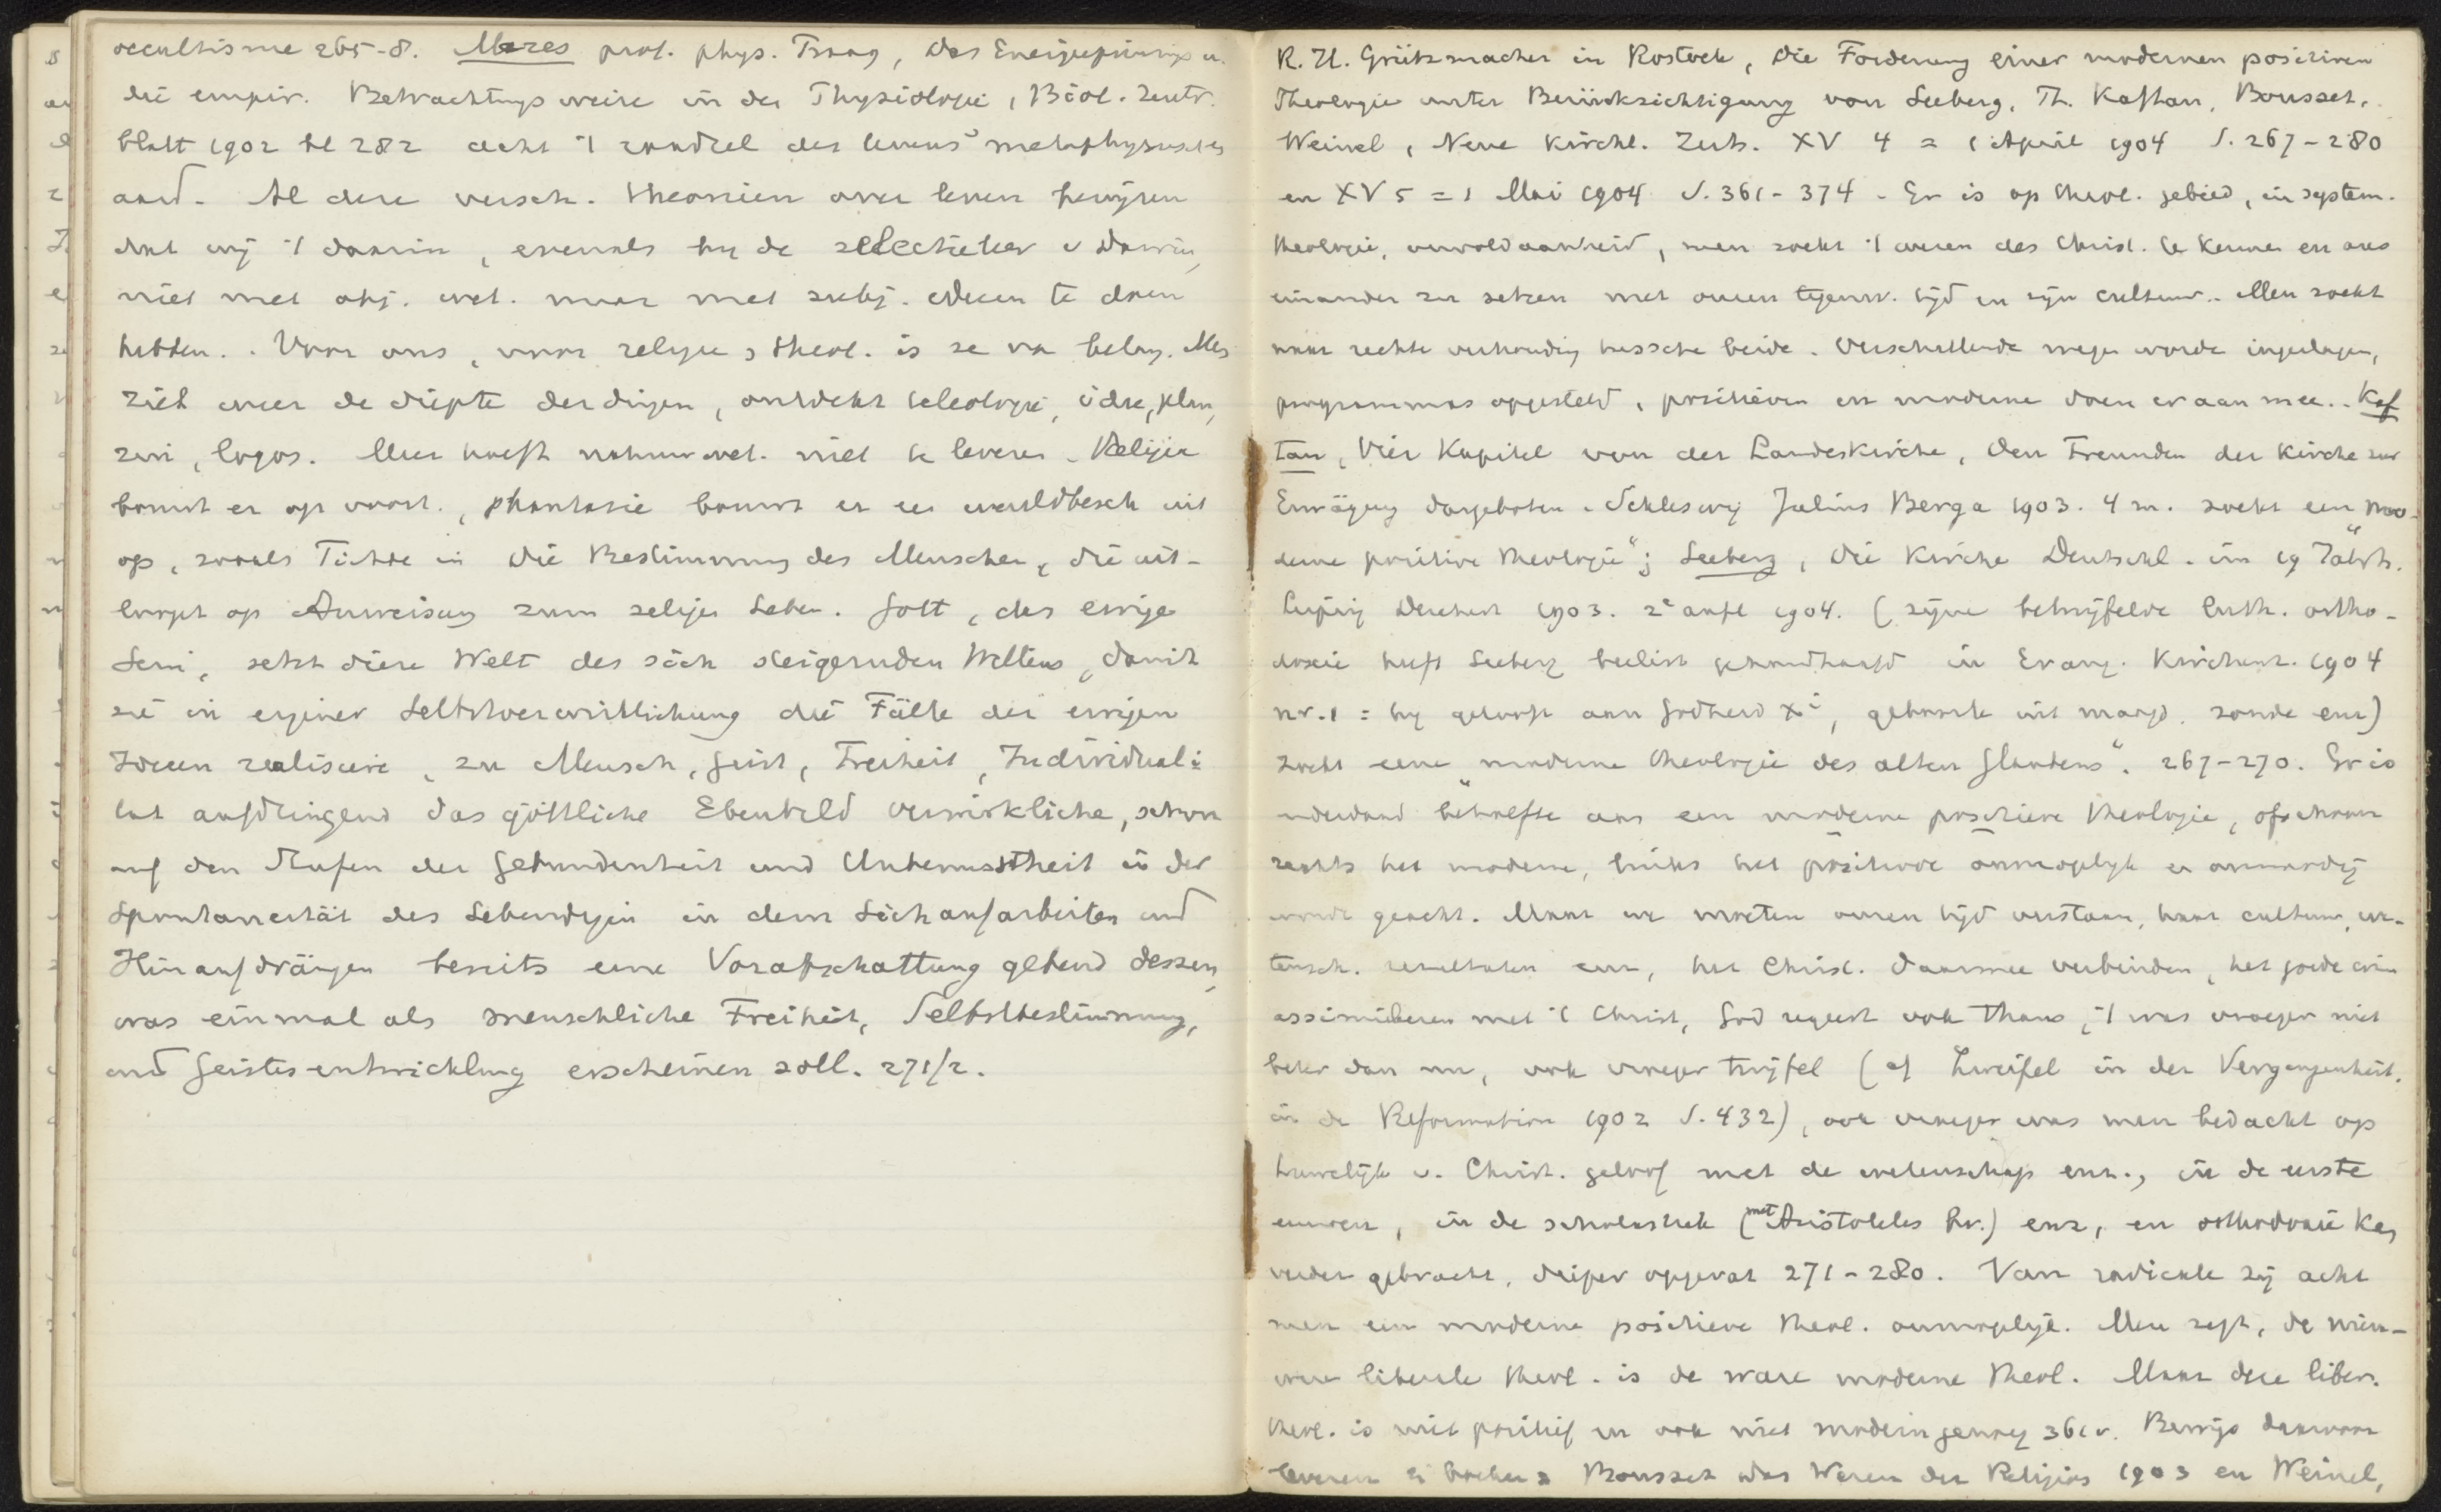 occultisme 265-8. Mares prof. phys. Praag, das Energieprinzip u.
die empir. Betrachtungsweise in der Physiologie, Biol. Zentr.
blatt 1902 bl 282 acht 't raadsel des levens metaphysisches
aard. Al deze versch. theorieen over leven bewijzen
dat wij 't daarin, evenals bij de selectieleer v Darwin,
niet met obj. wet. maar met subj. ideeen te doen
hebben. Voor ons, voor religie, theol. is ze van belang. Men
ziet weer de diepte der dingen, ontdekt teleologie, idee, plan,
zin, logos. Meer hoeft natuurwet. niet te leveren. Religie
bouwt er op voort, phantasie bouwt er een wereldbesch uit
op, zooals Fichte in die Bestimmung des Menschen, die uit-
loopt op Anweisung zum seligen Leben. Gott, das ewige
Sein, setzt diese Welt des sich steigernden Willens, damit
sie in eigener Selbstverwirklichung die Fülle der ewigen
Ideen realisiere, zu Mensch, Geist, Freiheit, Individuali-
tät aufdringend das göttliche Ebenbild verwirkliche, schon
auf den Stufen der Gebundenheit und Unbewusstheit in der
Spontaneität des Lebendigen in dem Sichaufarbeiten und
Hinaufdrängen bereits eine Vorabschattung gebend dessen,
was einmal als menschliche Freiheit, Selbstbestimmung,
und Geistesentwicklung erscheinen soll. 271/2.
R. H. Grützmacher in Rostock, Die Forderung einer modernen positiven
Theologie unter Berücksichtigung von Seeberg, Th. Kaftan, Bousset,
Weinel, Neue Kirchl. Zeits. XV 4 = 1 April 1904 S. 267-280
en XV 5 = 1 Mai 1904 S. 361-374. Er is op theol. gebied, in system.
theologie, onvoldaanheid, men zoekt 't wezen des Christ. te kennen en aus
einander zu setzen met onzen tegenw. tijd en zijn cultuur. Men zoekt
naar rechte verhouding tusschen beide. Verschillende wegen worden ingeslagen,
programmas opgesteld, positieven en moderne doen er aan mee. Kaf
tan, Vier Kapitel von der Landeskirche, den Freunden der Kirche zur
Erwägung dargeboten. Schleswig Julius Bergas 1903. 4 m. zoekt een "mo-
derne positive Theologie"; Seeberg, Die Kirche Deutschl. im 19 Jahrh.
Leipzig Deichert 1903. 2e aufl 1904. (zijne betwijfelde luth. ortho-
doxie heeft Seeberg beslist gehandhaafd in Evang. Kirchenz. 1904
nr. 1 = hij gelooft aan Godheid Xi, geboorte uit maagd, zonde enz)
zoekt eene "moderne Theologie des alten Glaubens". 267-270. Er is
inderdaad behoefte aan een moderne positieve theologie, ofschoon
rechts het moderne, links het positieve onmogelijk en onnoodig
wordt geacht. Maar we moeten onzen tijd verstaan, haar cultuur, we-
tensch. resultaten enz, het Christ. daarmee verbinden, het goede erin
assimileren met 't Christ, God regeert ook thans, 't was vroeger niet
beter dan nu, ook vroeger twijfel (cf Zweifel in der Vergangenheit,
in de Reformation 1902 S. 432), ook vroeger was men bedacht op
huwelijk v. Christ. geloof met de wetenschap enz., in de eerste
eeuwen, in de scholastiek (met Aristoteles bv.) enz, en orthodoxie
verder gebracht, dieper opgevat 271-280. Van radicale zij acht
men een moderne positieve theol. onmogelijk. Men zegt, de nieu-
were liberale theol. is de ware moderne theol. Maar deze liber.
theol. is niet positief en ook niet modern genoeg 361 v. Bewijs daarvoor
leveren 2 boeken Bousset das Wesen der Religion 1903 en Weinel,